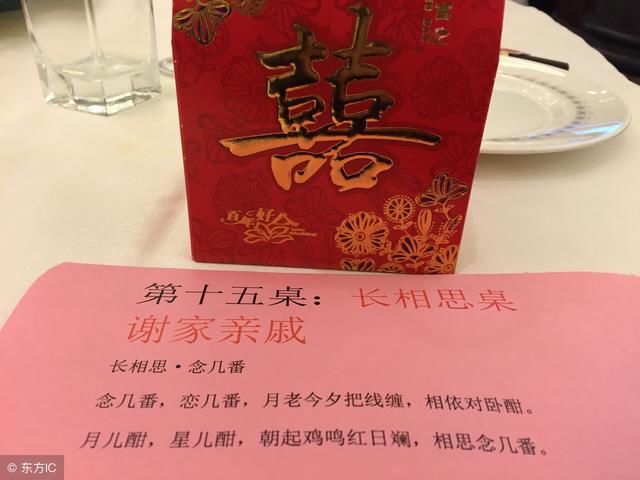 囍
百年好合
第十五桌：长相思桌
谢家亲戚
长相思·念几番
念几番，恋几番，月老今夕把线缠，相依对卧酣。
月儿酣，星儿酣，朝起鸡鸣红日斓，相思念几番。
© 东方IC